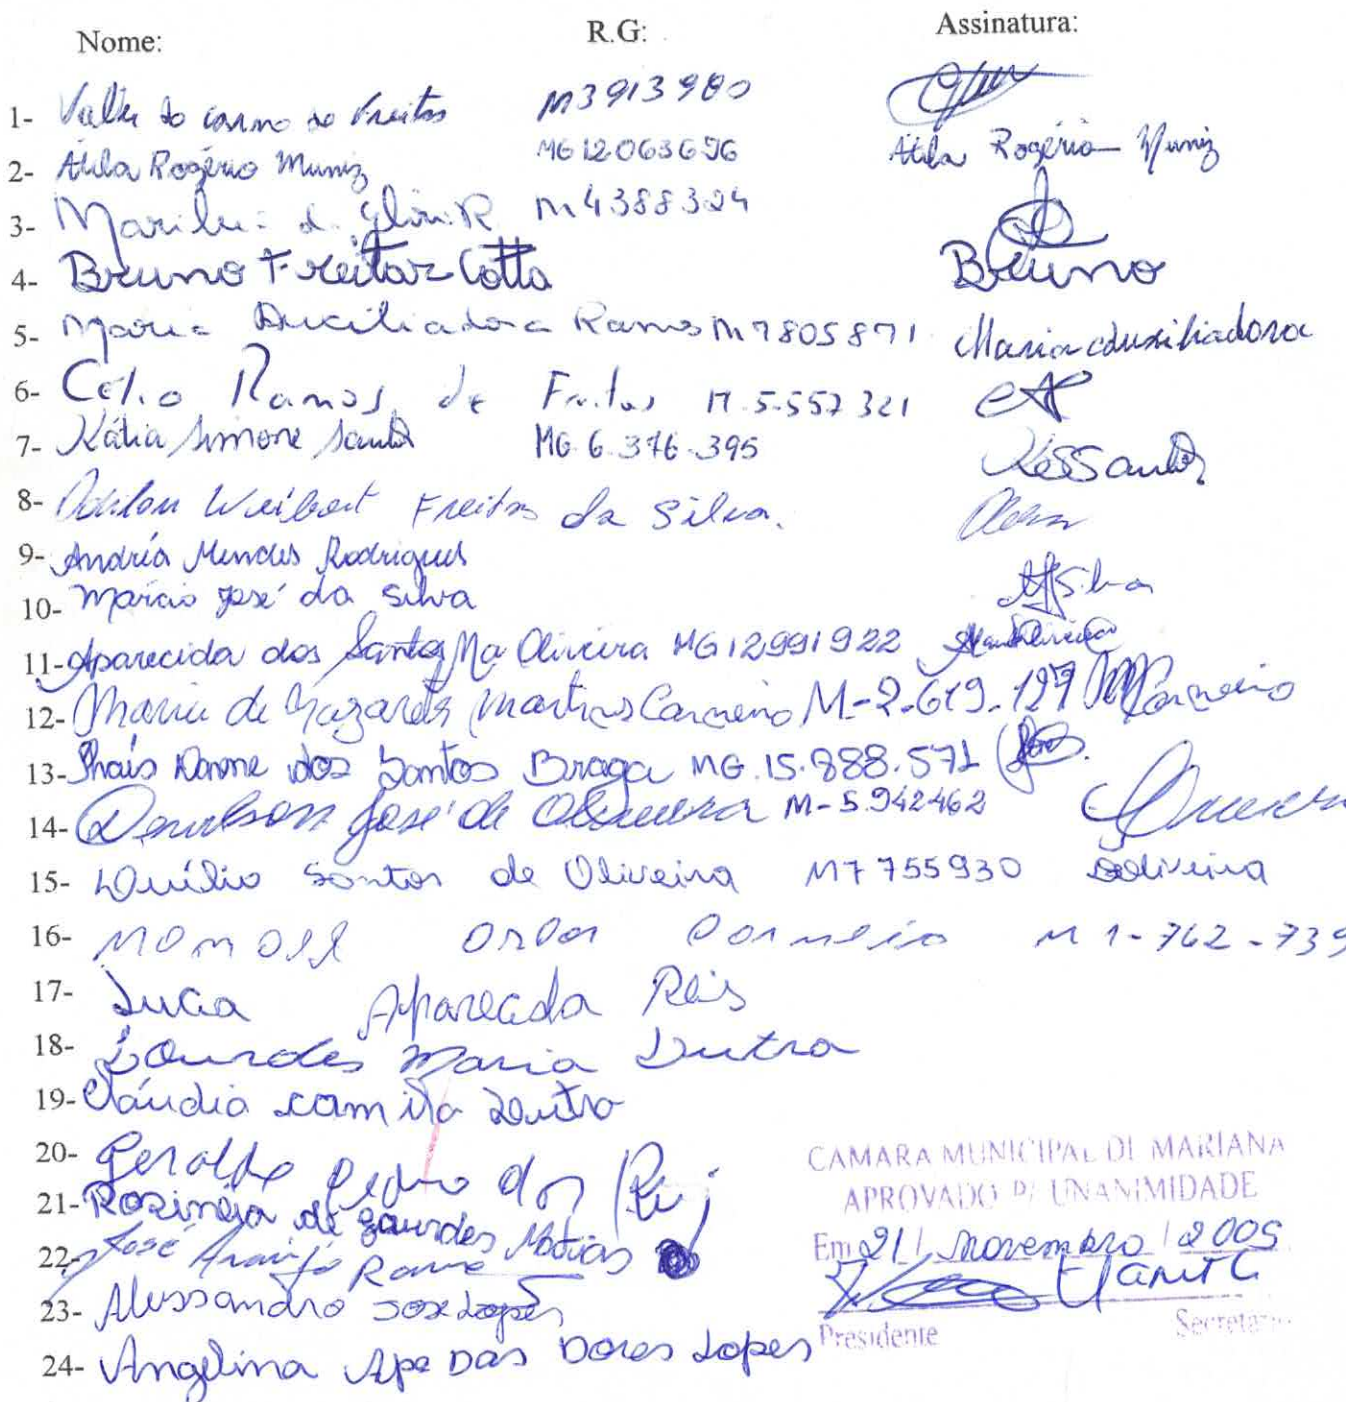 Nome: R.G: Assinatura:
1- do carmo de Freitas M3913980
2- Átila Rogério Muniz MG12063696 Átila Rogério Muniz
3- M4388324
4- Bruno Freitas Cotta Bruno
5- Maria Auxiliadora Ramos M7805871 Maria Auxiliadora
6- Célio Ramos de Freitas M.5.557321
7- Kátia Simone Santos MG.6.376.395 KSSantos
8- Freitas da Silva.
9- Andréa Mendes Rodrigues
10- Marcio José da Silva
11- Aparecida dos Santos Oliveira MG12991922
12- Maria de Nazareth Martins Carneiro M-2.619.127 Carneiro
13- dos Santos Braga MG.15.888.571
14- José de Oliveira M-5.942462
15- Santos de Oliveira M7755930
16- M1-762-739
17- Lucia Aparecida Reis
18- Lourdes Maria Dutra
19- Cláudia Camila Dutra
20- Geraldo Pedro dos Reis
21- de Lourdes Matias
22- José Araújo
23- Alessandro José Lopes
24- Angelina Apª Das Dores Lopes
CAMARA MUNICIPAL DE MARIANA
APROVADO P/ UNANIMIDADE
Em 21 / novembro / 2005
Presidente Secretário